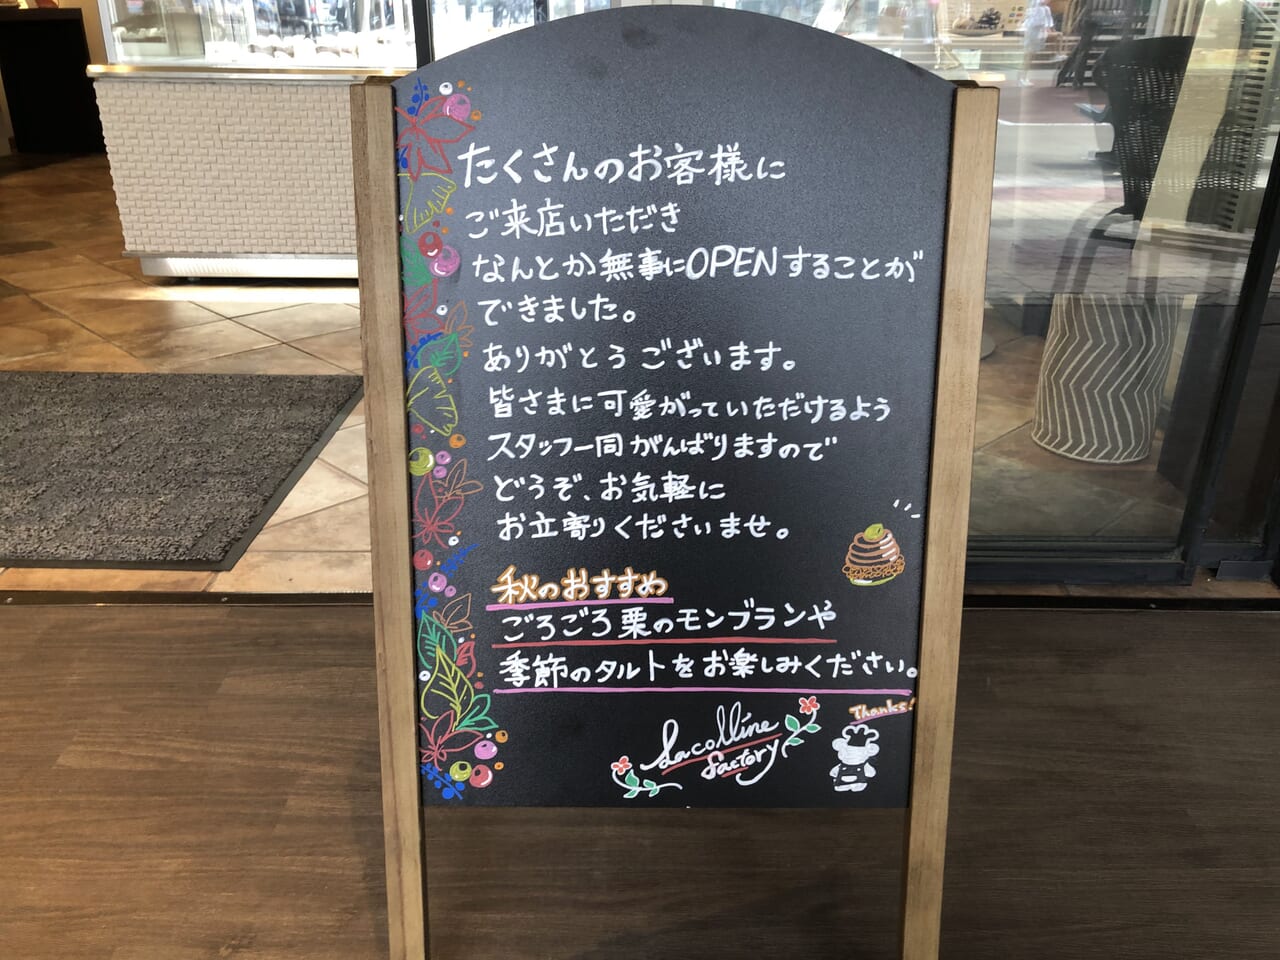 たくさんのお客様に
ご来店いただき
なんとか無事にOPENすることが
できました。
ありがとうございます。
皆さまに可愛がっていただけるよう
スタッフ一同がんばりますので
どうぞ、お気軽に
お立寄りくださいませ。
秋のおすすめ
ごろごろ栗のモンブランや
季節のタルトをお楽しみください。
Thanks!
Lacolline
factory